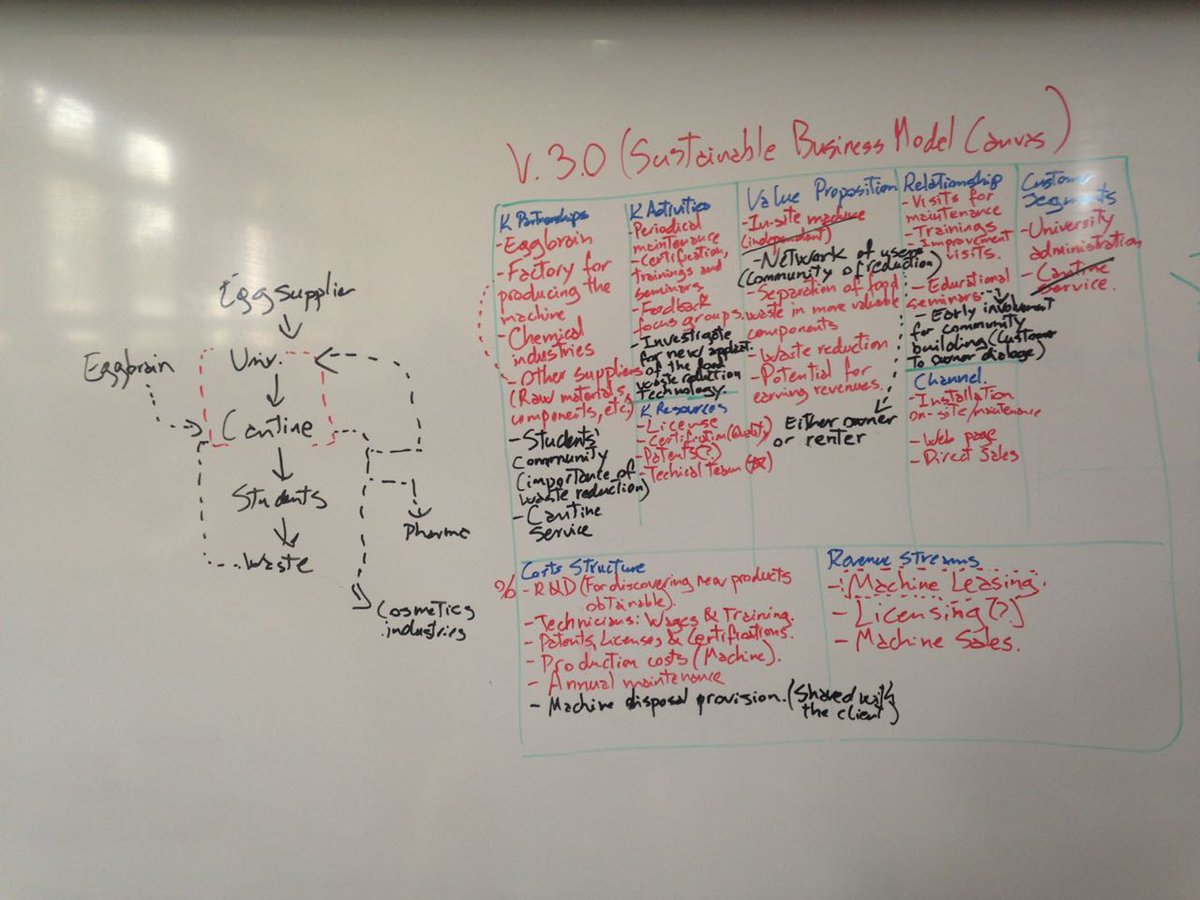 Egg supplier
Univ.
Eggbrain
Cantine
Students
Waste
Pharma
Cosmetics
industries
V. 3.0 (Sustainable Business Model Canvas)
K Partnerships
- Eggbrain
- Factory for
producing the
machine
- Chemical
industries
- Other suppliers
(Raw materials,
components, etc)
- Students'
community
(importance of
waste reduction)
- Cantine
Service
K Activities
- Periodical
maintenance
- Certification,
trainings and
seminars
- Feedback
focus groups.
- Investigate
for new applicat.
of the food
waste reduction
Technology.
K Resources
- License
- Certifiction (Quality)
- Patents (?)
- Techical Team
Value Proposition
- In-site machine
(independent)
- Network of users
(Community of reduction)
- Separation of food
waste in more valuable
components
- Waste reduction
- Potential for
earving revenues.
Either owner
or renter
Relationship
- Visits for
maintenance
- Trainings
- Improvement
visits.
- Educational
seminars
- Early involvement
for community
building (Customer
to owner dialoge)
Channel.
- Installation
on-site/maintenance
- Web page
- Direct Sales
Customer
Segments
- University
administration
- Cantine
Service.
Costs Structure
% - R&D (For discovering new products
obtainable).
- Technicians: Wages & Training.
- Patents, Licenses & Certifications.
- Production costs (Machine).
- Annual maintenance
- Machine disposal provision. (Shared with
the client)
Revenue Streams
- Machine Leasing.
- Licensing (?)
- Machine Sales.